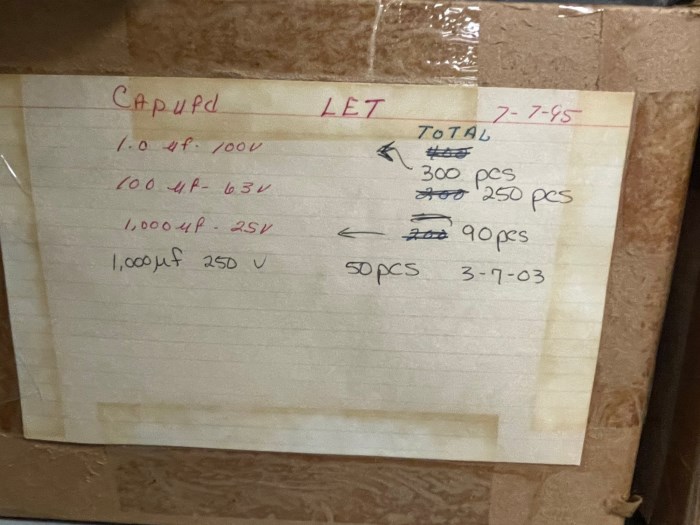 CAPUPD LET 7-7-95
TOTAL
1.0 uf - 100V 400
300 pcs
100 uf - 63V 200 250 pcs
1,000 uf - 25V 200 90 pcs
1,000 µf 250 V 50 pcs 3-7-03